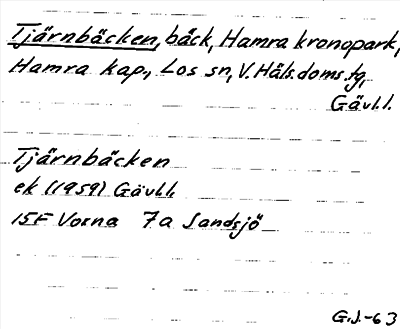 Tjärnbäcken, bäck, Hamra kronopark,
Hamra kap., Los sn, V. Häls. doms. tg,
Gävl.l.
Tjärnbäcken
ek (1959) Gävl.l.
15F Voxna 7a Sandsjö
G.J.-63